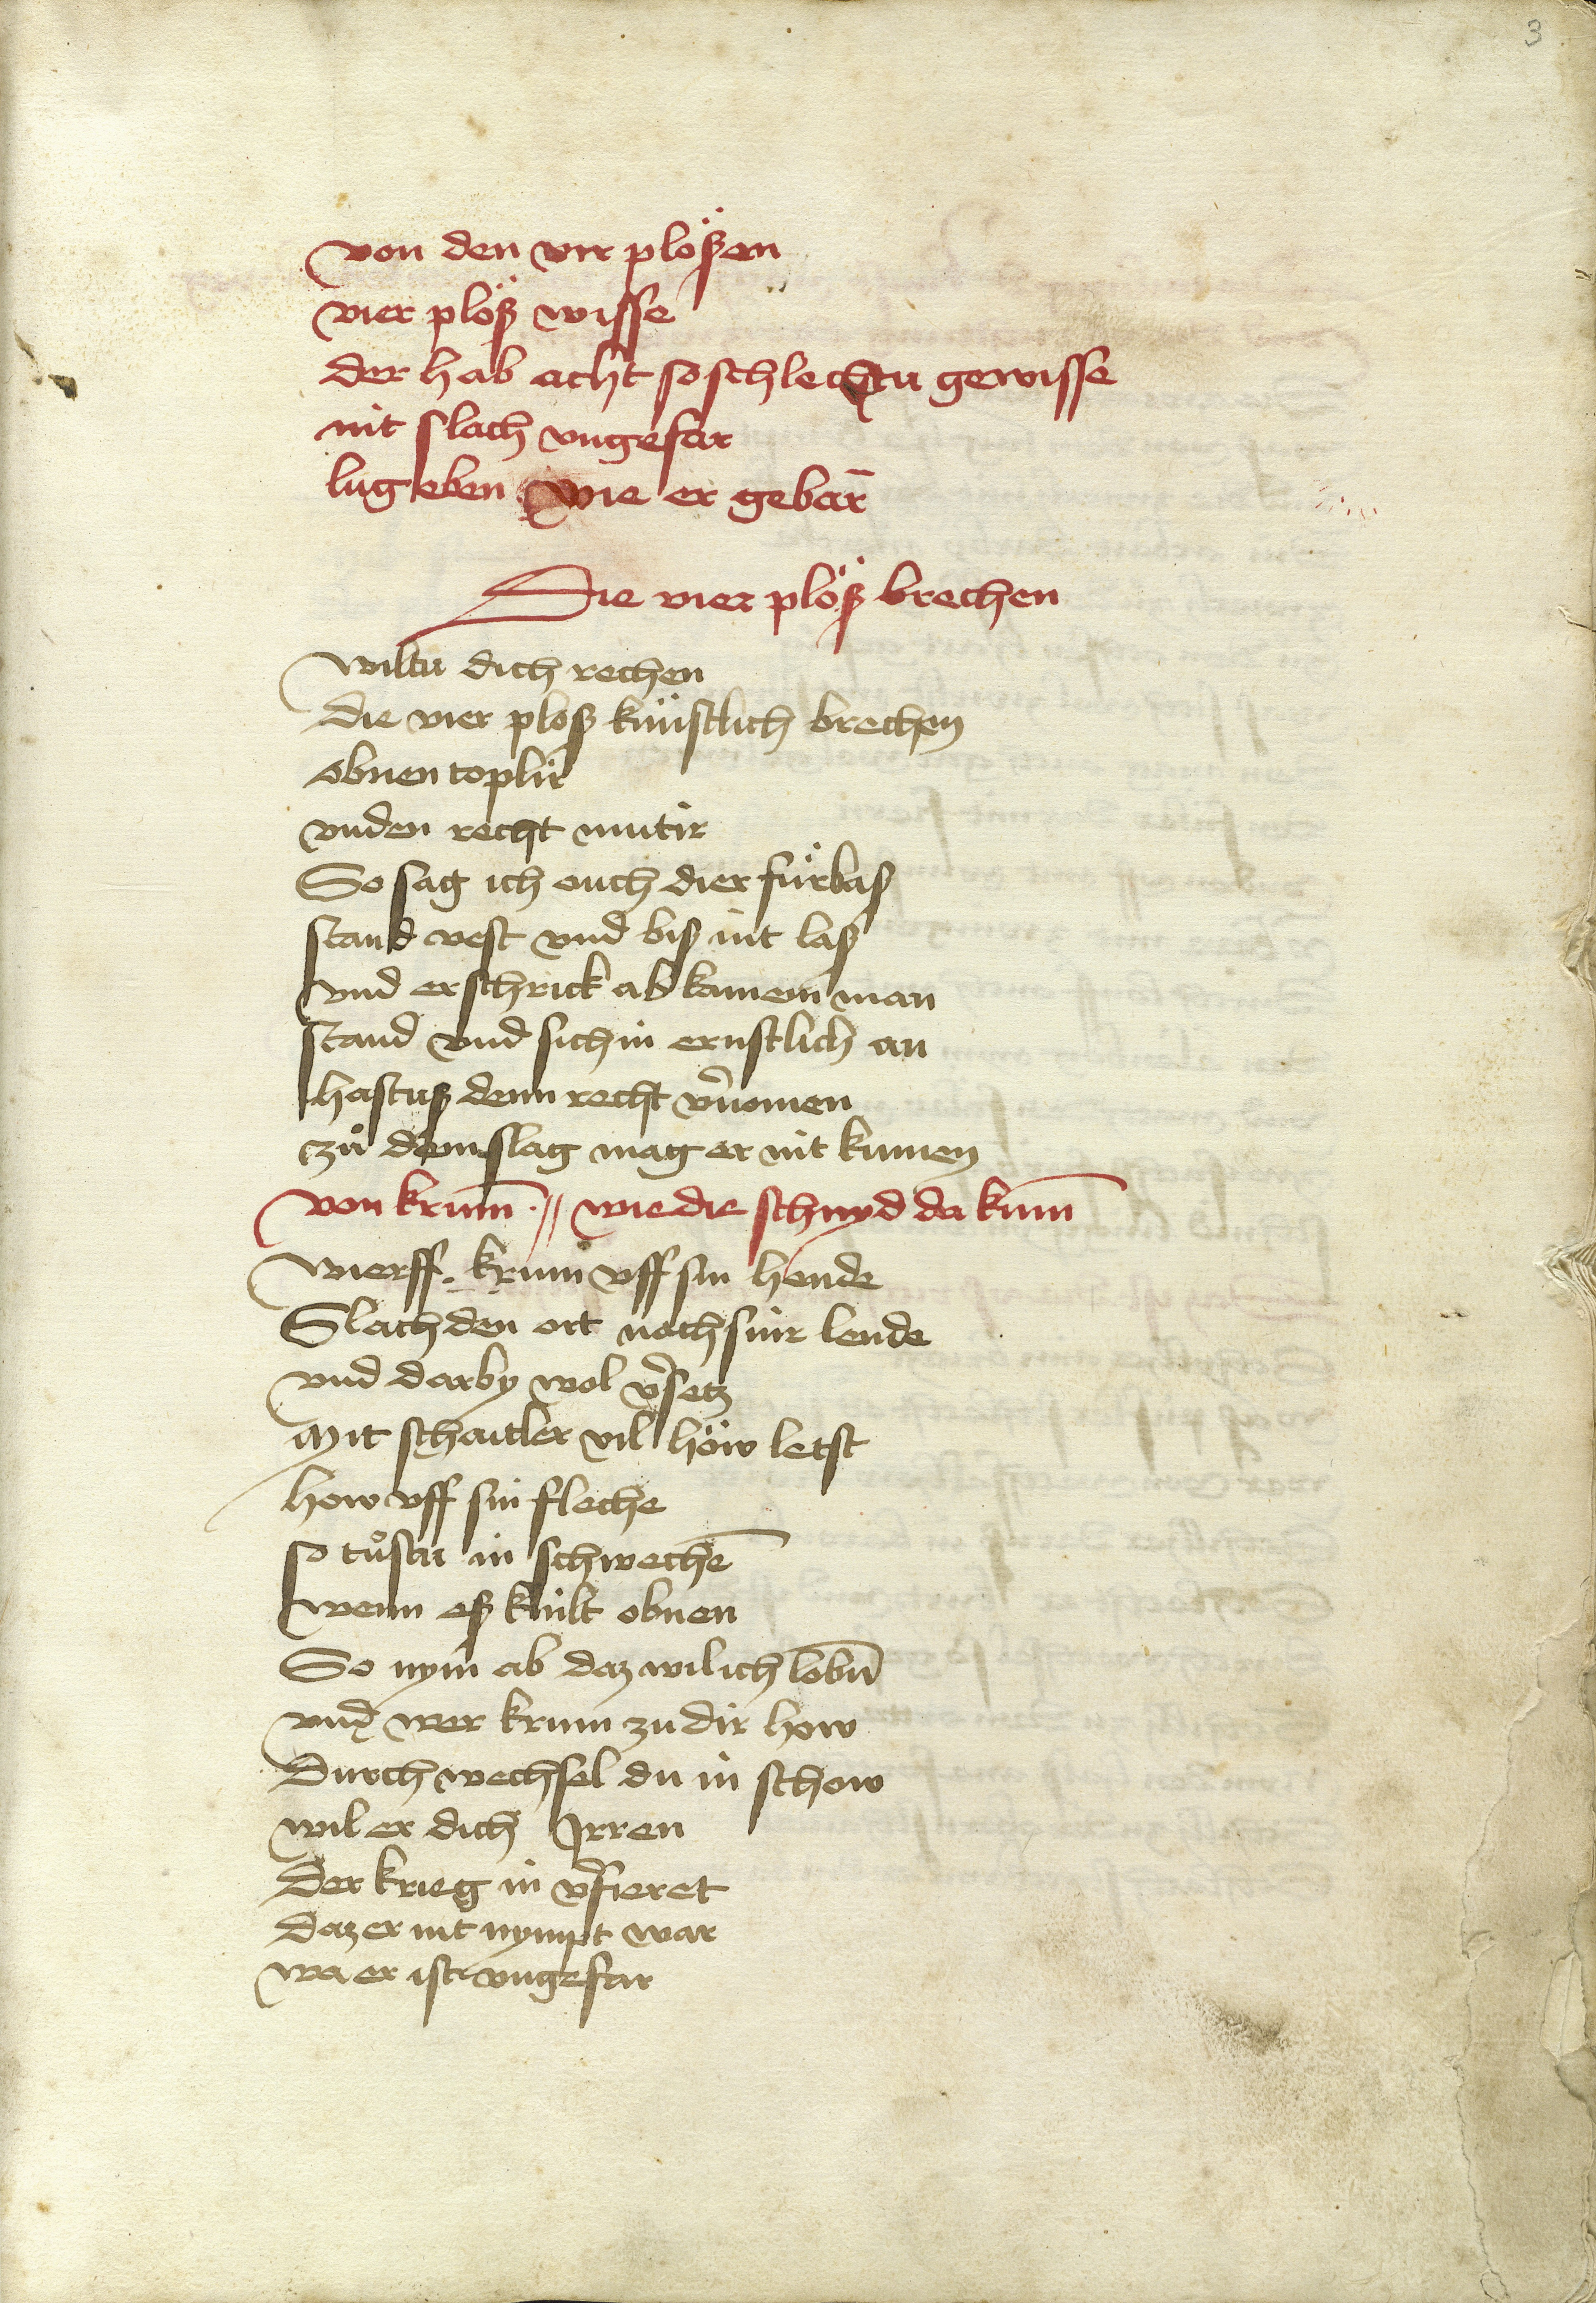 3
von den vir plößen
vier plöß wisse
der hab acht so schlechtu gewisse
nit slach vngefar
lug eben wie er gebar̄
Die vier plöß brechen
wiltu dich rechen
die vier ploß künstlich brechen
obnen toplir
vnden recht mutir
So sag ich ouch dier fürbaß
stand vest vnd biß nit laß
vnd erschrick ab kainem man
stand vnd sich in ernstlich an
hastuß denn recht v̄nomen
zů dem slag mag er nit kumen
von krum̄ · // wie die schnyd da kum̄
wierff krum vff sin hende
Slach den ort nach sinr lende
vnd darby wol v̄setz
Mit schaitler vil höw letst
how vff sin fleche
so tůstu in schweche̅
wenn eß knilt obnen
So nym ab daz wil ich lobn̄
vnd wer krum zu dir how
Durchwechsel du in schow
wil er dich Irren
Der krieg in v̄fieret
Daz er nit nympt war
wa er ist vngefar